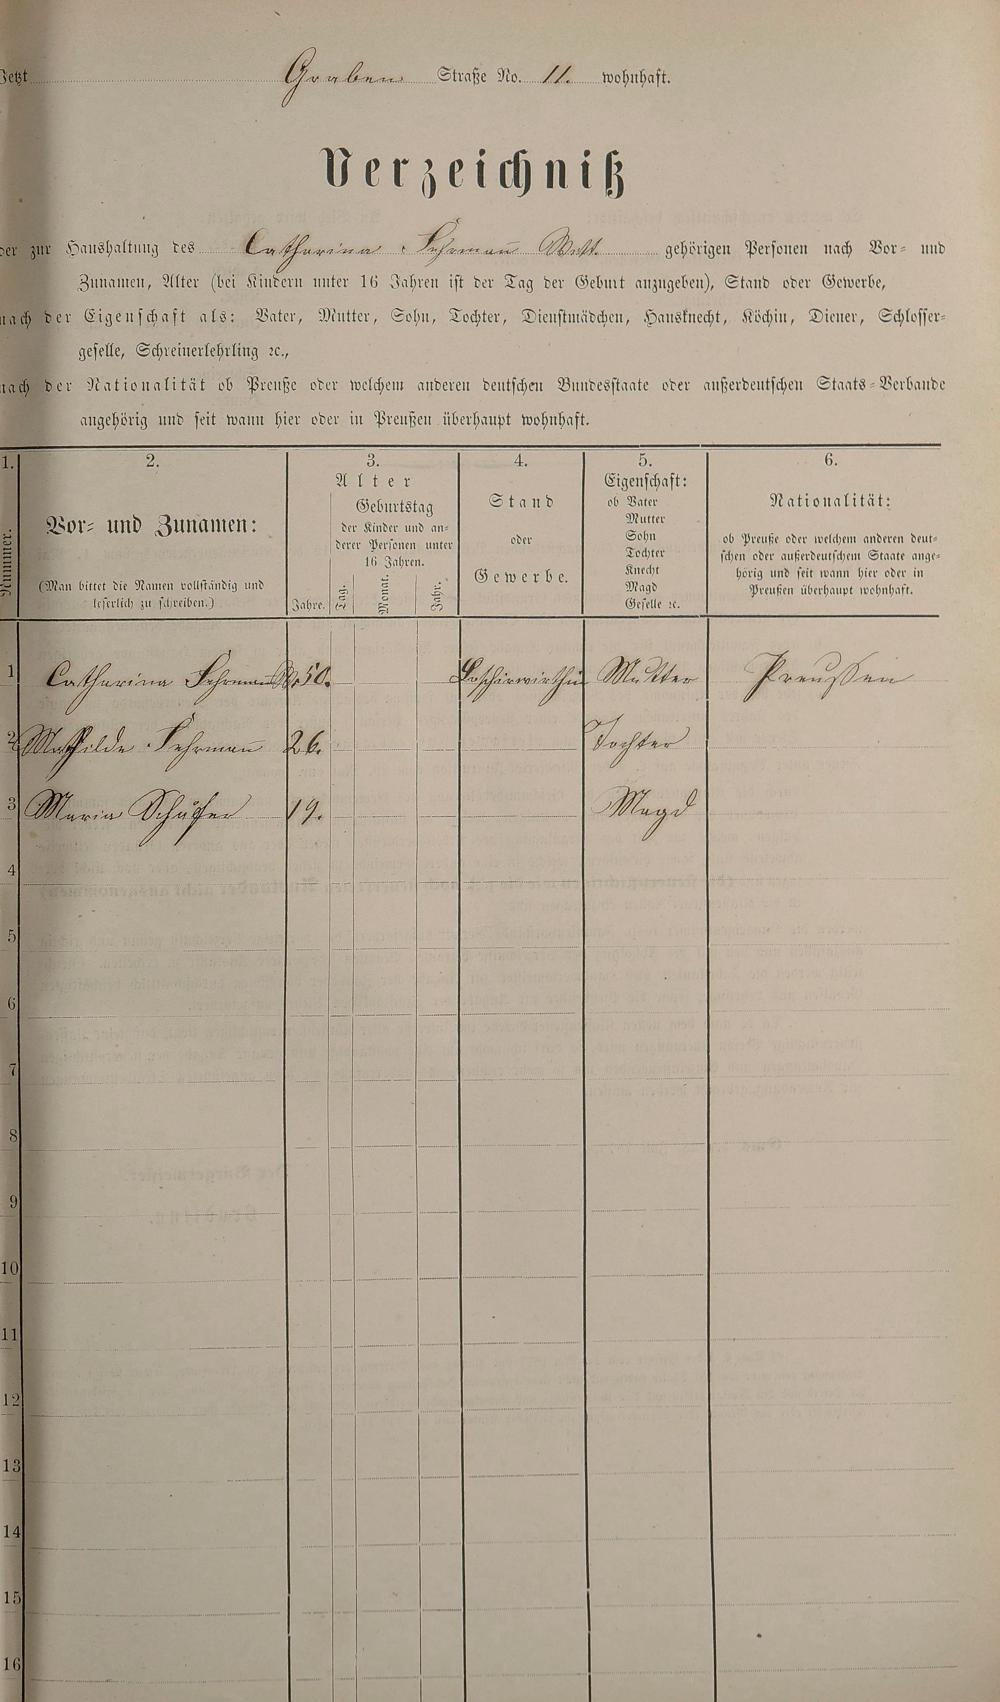 Jetzt Graben Straße No. 11. wohnhaft.
Verzeichniß
der zur Haushaltung des Catharina Fehrman̄ Witt. gehörigen Personen nach Vor- und
Zunamen, Alter (bei Kindern unter 16 Jahren ist der Tag der Geburt anzugeben), Stand oder Gewerbe,
nach der Eigenschaft als: Vater, Mutter, Sohn, Tochter, Dienstmädchen, Hausknecht, Köchin, Diener, Schlosser-
geselle, Schreinerlehrling ꝛc.,
nach der Nationalität ob Preuße oder welchem anderen deutschen Bundesstaate oder außerdeutschen Staats-Verbande
angehörig und seit wann hier oder in Preußen überhaupt wohnhaft.
1. 2. 3. 4. 5. 6.
Nummer.
Vor- und Zunamen:
(Man bittet die Namen vollständig und
leserlich zu schreiben.)
Alter
Jahre.
Geburtstag
der Kinder und an-
derer Personen unter
16 Jahren.
Tag. Monat. Jahr.
Stand
oder
Gewerbe.
Eigenschaft:
ob Vater
Mutter
Sohn
Tochter
Knecht
Magd
Geselle ꝛc.
Nationalität:
ob Preuße oder welchem anderen deut-
schen oder außerdeutschem Staate ange-
hörig und seit wann hier oder in
Preußen überhaupt wohnhaft.
1 Catharina Fehrman̄ 50. Mutter Preussen
2 Mathilde Fehrman̄ 26. Tochter
3 Maria Schäfer 19. Magd
4
5
6
7
8
9
10
11
12
13
14
15
16